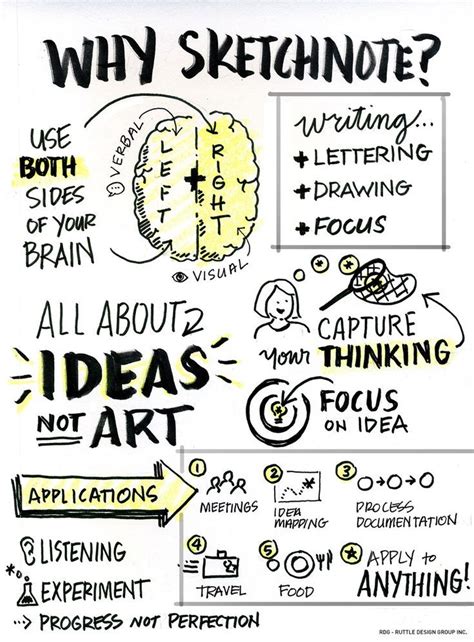 WHY SKETCHNOTE?
USE
BOTH
SIDES
OF YOUR
BRAIN
VERBAL
LEFT
+
RIGHT
VISUAL
writing...
+ LETTERING
+ DRAWING
+ FOCUS
ALL ABOUT
IDEAS
NOT ART
CAPTURE
your THINKING
FOCUS
ON IDEA
APPLICATIONS
1
MEETINGS
2
IDEA
MAPPING
3
PROCESS
DOCUMENTATION
4
TRAVEL
5
FOOD
APPLY to
ANYTHING!
LISTENING
EXPERIMENT
PROGRESS NOT PERFECTION
RDG - RUTTLE DESIGN GROUP INC.